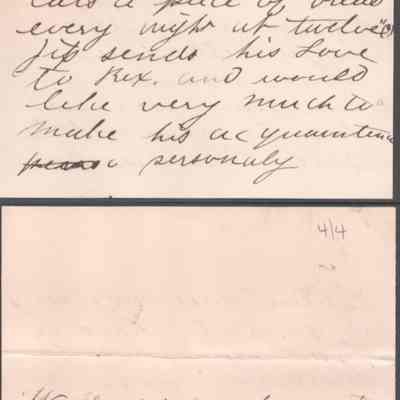 eats a piece of bread
every night at twelve"(?)
Jip sends his Love
to Rex. and would
like very much to
make his acquaintence
personaly
4/4